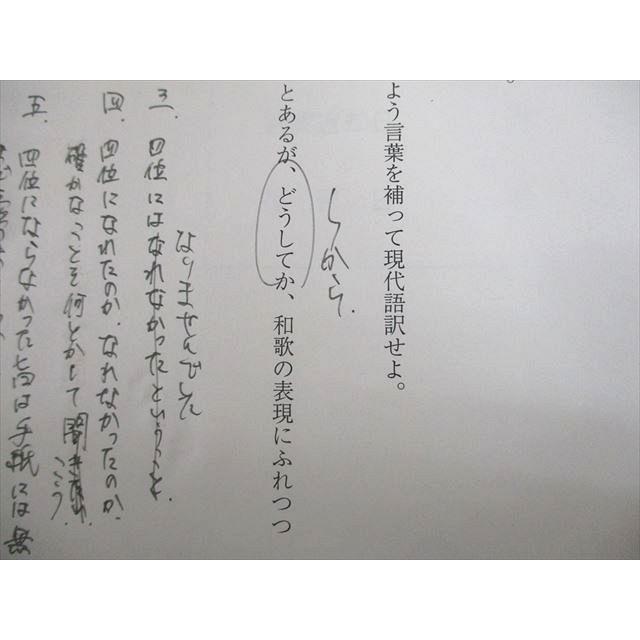 よう言葉を補って現代語訳せよ。
から、
とあるが、どうしてか、和歌の表現にふれつつ
なりませんでした
三、四位にはなれなかったということ。
四、四位になれたのか、なれなかったのか、
確かなことを何とかして聞き
五、四位にならなかった旨は手紙には無